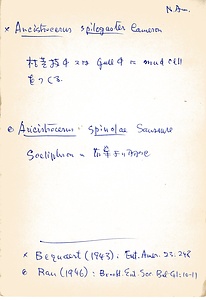 N.Am.
× Ancistrocerus spilogaster Cameron
ヌハ Gall ヤ mud cell
をつくる.
⊙ Ancistrocerus spinolae Saussure
Sceliphron ノ
× Bequaert (1943): Ent. Amer. 23: 248
⊙ Rau (1946): Brookl. Ent. Soc. Bul. 41: 10-11